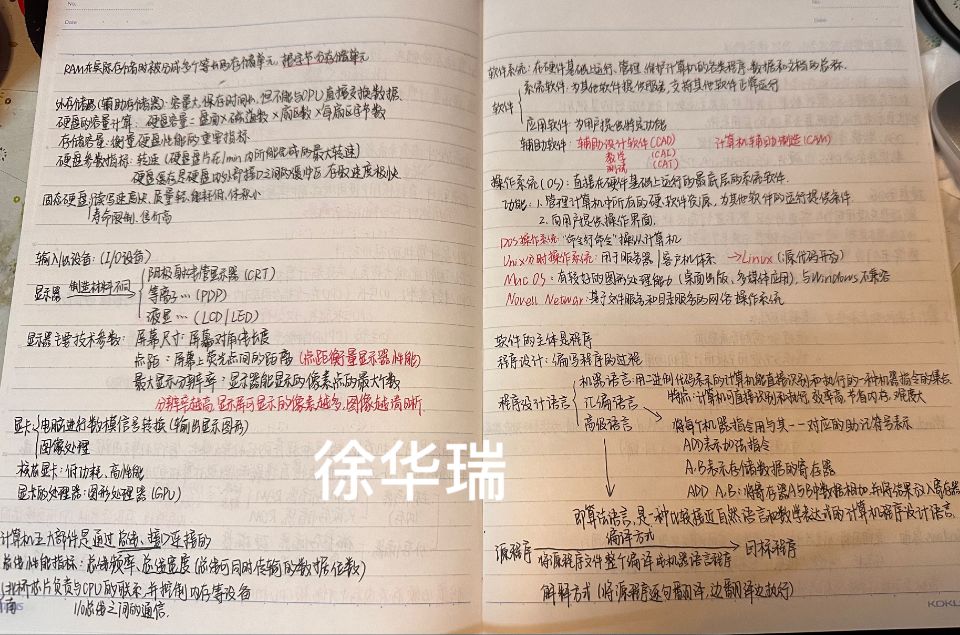 No.
Date
RAM在实际存储时被分成多个等长的存储单元, 把字节为存储单元
外存储器(辅助存储器): 容量大, 保存时间长, 但不能与CPU直接交换数据.
硬盘的容量计算: 硬盘容量 = 盘面 × 磁道数 × 扇区数 × 每扇区字节数
存储容量: 衡量硬盘性能的重要指标
硬盘参数指标: 转速 (硬盘盘片在1min内所能完成的最大转速)
硬盘缓存是硬盘内外部接口之间的缓冲区, 存取速度极快
固态硬盘 读写速度快、质量轻、能耗低、体积小
寿命限制、售价高
输入输出设备: (I/O设备)
显示器 制造材料不同
阴极射线管显示器 (CRT)
等离子… (PDP)
液显… (LCD | LED)
显示器主要技术参数: 屏幕尺寸: 屏幕对角线长度
点距: 屏幕上荧光点间的距离 (点距衡量显示器性能)
最大显示分辨率: 显示器能显示的像素点的最大个数
分辨率越高, 显示屏可显示的像素越多, 图像越清晰
显卡 电脑进行数模信号转换 (输出显示图形)
图像处理
核芯显卡: 低功耗、高性能
显卡的处理器: 图形处理器 (GPU)
计算机五大部件是通过总线、接口连接的
总线性能指标: 总线频率、总线宽度 (总线可同时传输的数据位数)
北桥芯片负责与CPU的联系, 并控制内存等设备
南 I/O总线之间的通信.
No.
Date
软件系统: 在硬件基础上运行、管理、维护计算机的各类程序、数据和文档的总称.
软件
系统软件: 为其他软件提供服务, 支持其他软件正常运行
应用软件: 为用户提供特定功能
辅助软件: 辅助设计软件 (CAD) 计算机辅助制造 (CAM)
教学 (CAL)
测试 (CAT)
操作系统 (OS): 直接在硬件基础上运行的最底层的系统软件.
功能: 1. 管理计算机中所有的硬、软件资源, 为其他软件的运行提供条件
2. 向用户提供操作界面.
DOS操作系统: "命令行命令"操纵计算机
Unix分时操作系统: 用于服务器 | 客户机体系 → Linux (源代码开放)
Mac OS: 有较好的图形处理能力 (桌面出版, 多媒体应用), 与Windows不兼容
Novell Netwar: 基于文件服务和目录服务的网络操作系统
软件的主体是程序
程序设计: 编写程序的过程
程序设计语言
机器语言: 用二进制代码表示的计算机能直接识别和执行的一种机器指令的集合
特点: 计算机可直接识别和执行, 效率高, 节省内存, 难度大
汇编语言
高级语言 将每个机器指令用与其一一对应的助记符号表示
ADD表示加法指令
A.B表示存储数据的寄存器
ADD A.B: 将寄存器A与B中数据相加并将结果存入寄存器
即算法语言, 是一种比较接近自然语言和数学表达式的计算机程序设计语言.
源程序 编译方式 目标程序
将源程序文件整个编译成机器语言程序
解释方式 (将源程序逐句翻译, 边翻译边执行)
徐华瑞
KOKU